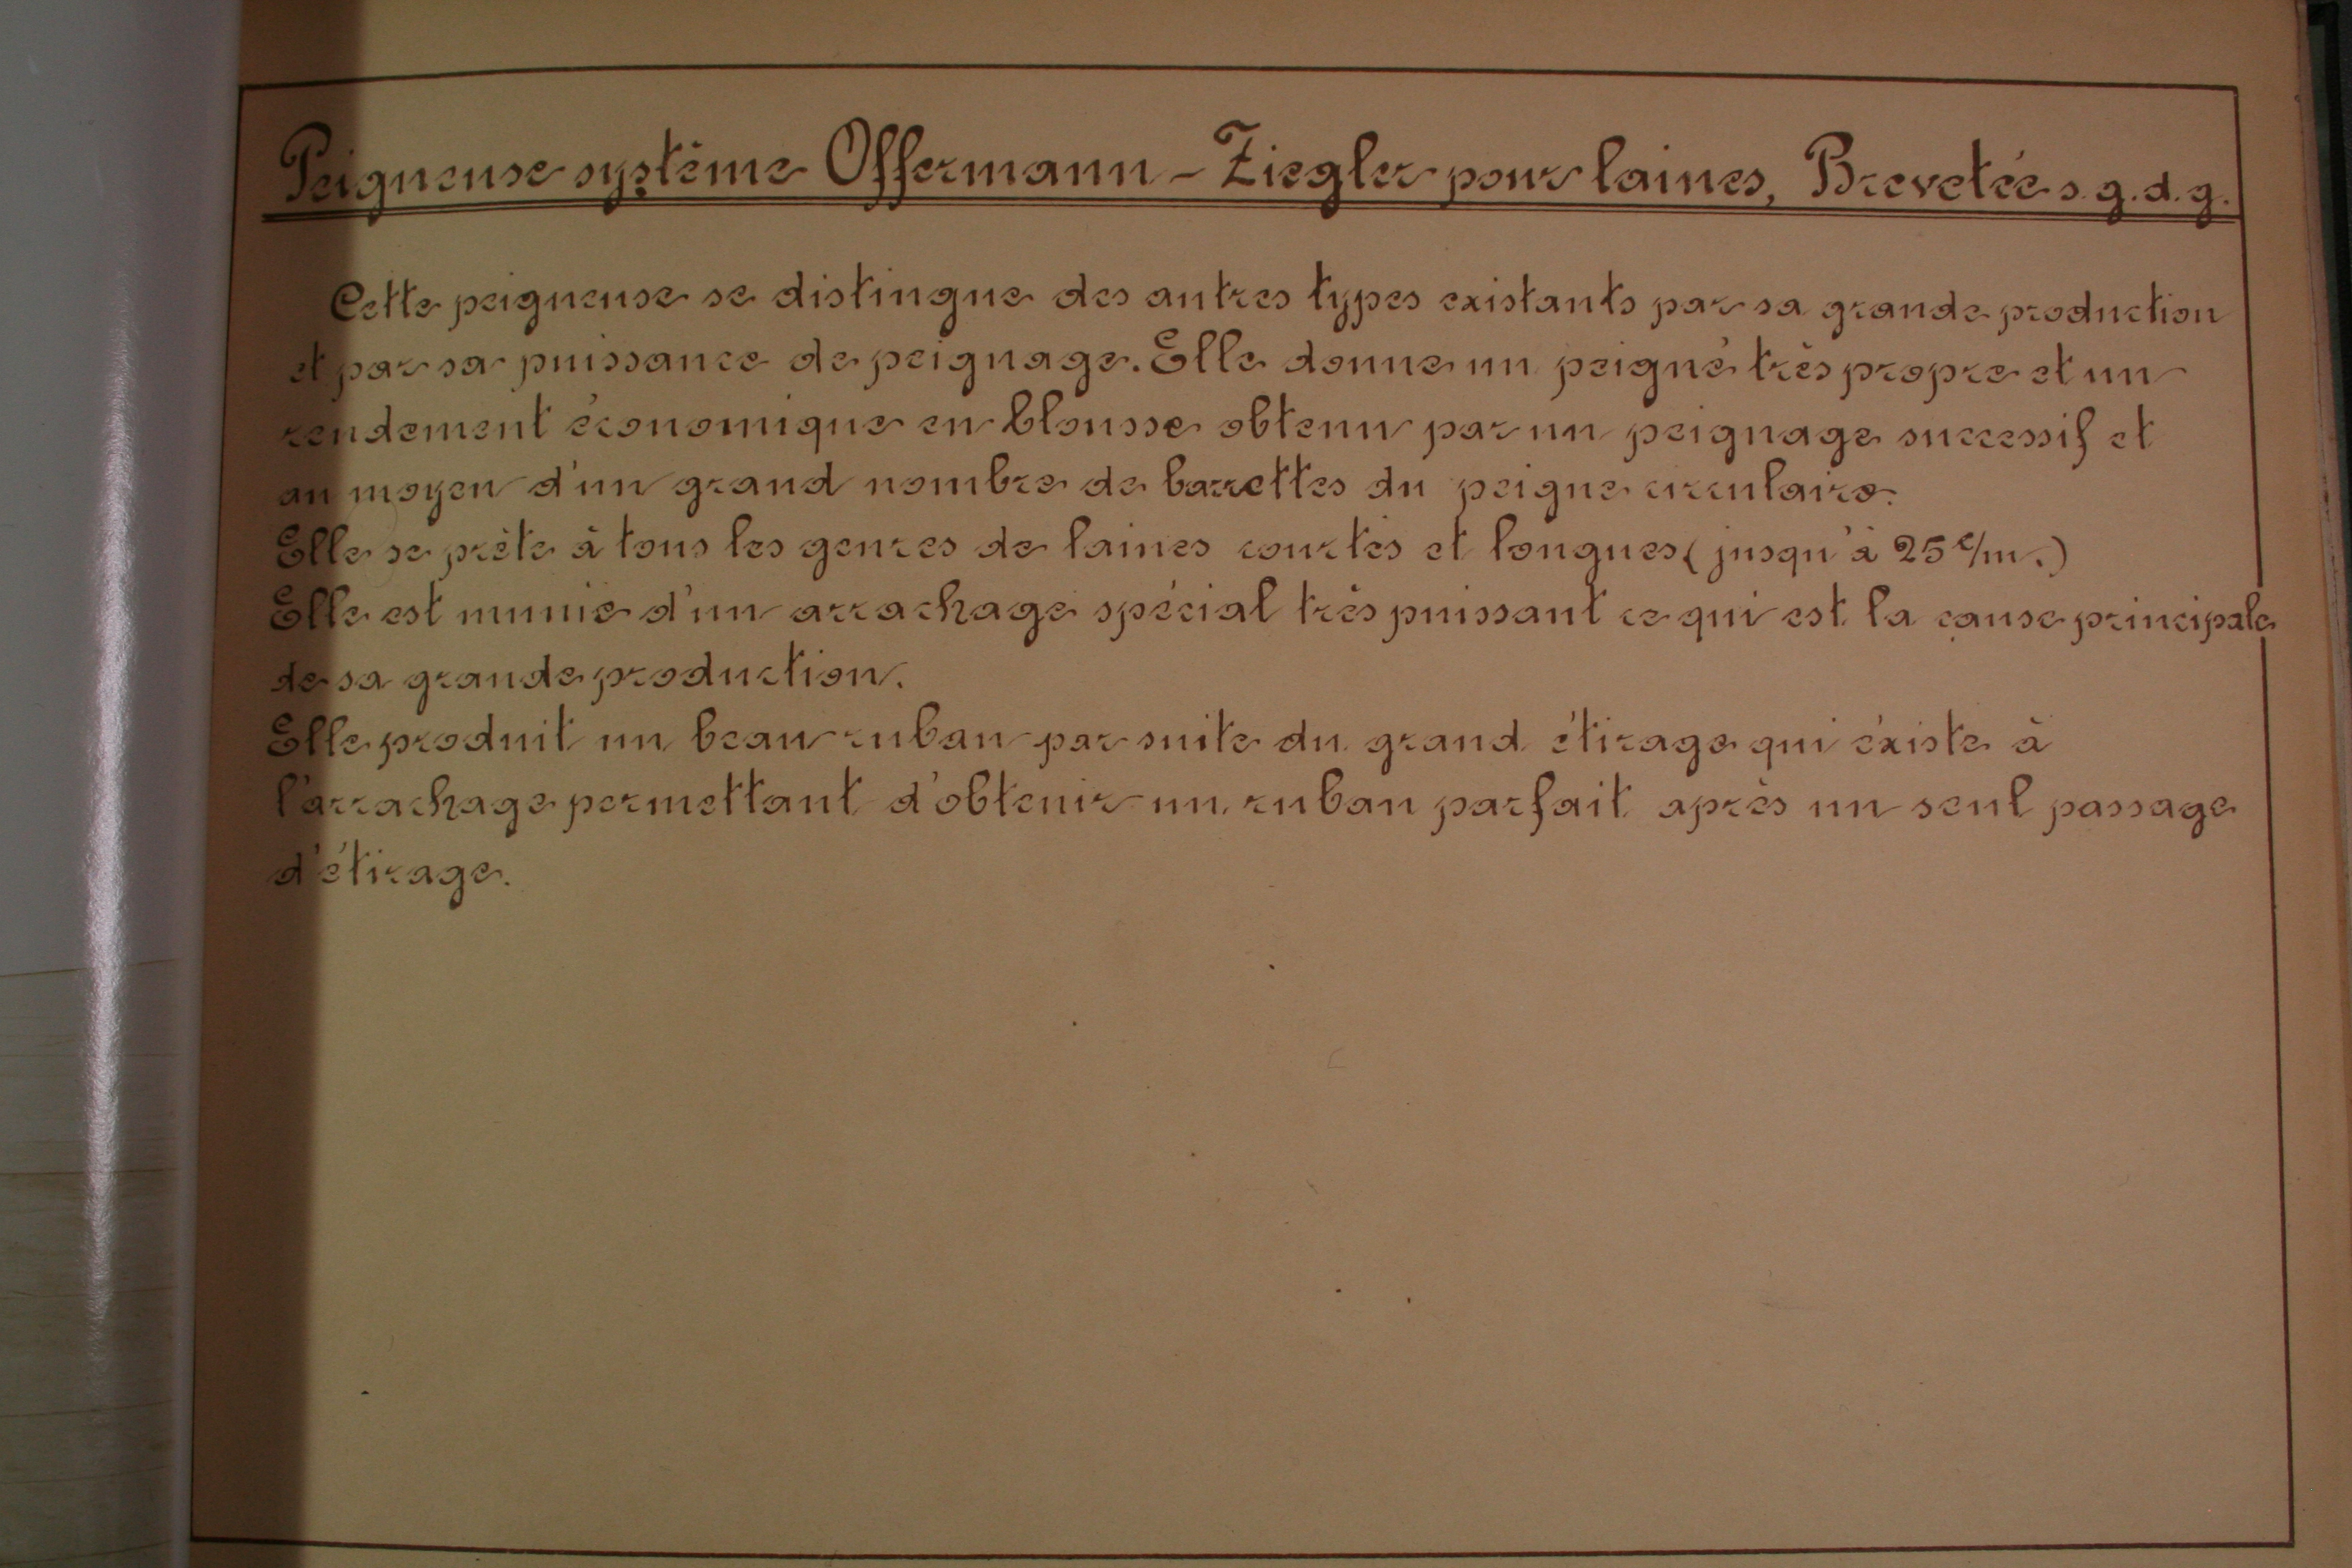 Peigneuse système Offermann - Ziegler pour laines, Brevetée s.g.d.g.
Cette peigneuse se distingue des autres types existants par sa grande production
et par sa puissance de peignage. Elle donne un peigné très propre et un
rendement économique en blousse obtenu par un peignage successif et
au moyen d'un grand nombre de barrettes du peigne circulaire.
Elle se prète à tous les genres de laines courtes et longues (jusqu'à 25 c/m.)
Elle est munie d'un arrachage spécial très puissant ce qui est la cause principale
de sa grande production.
Elle produit un beau ruban par suite du grand étirage qui éxiste à
l'arrachage permettant d'obtenir un ruban parfait après un seul passage
d'étirage.